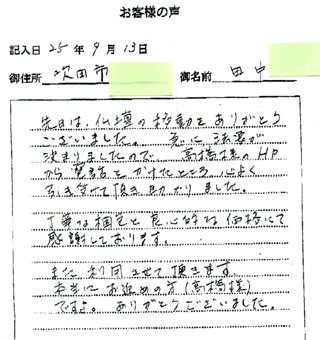 お客様の声
記入日 25年 9月 13日
御住所 吹田市 御名前 田中
先日は、仏壇の移動をありがとう
ございました。 急に法要が
決まりましたので 高橋様のHP
から電話をかけたところ 心よく
引き受けて頂き助かりました。
丁寧な梱包と良心的な価格にて
感謝しております。
また利用させて頂きます。
本当にお進めの方(高橋様)
ですよ。 ありがとうございました。